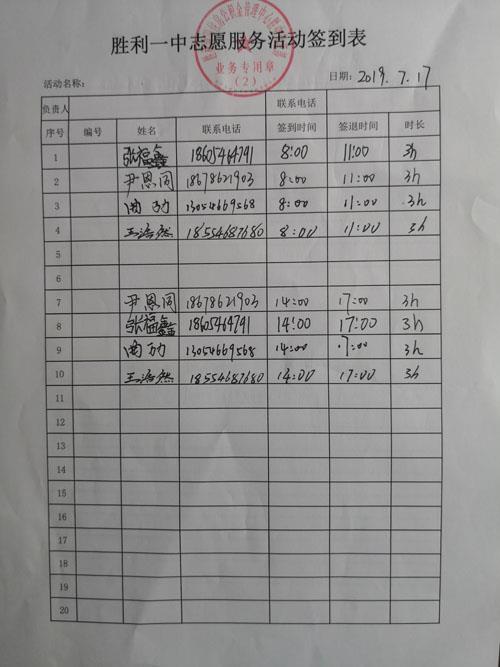 胜利一中志愿服务活动签到表
业务专用章
(2)
活动名称: 日期: 2019.7.17
负责人 联系电话
序号 编号 姓名 联系电话 签到时间 签退时间 时长
1 张福鑫 18605464741 8:00 11:00 3h
2 尹恩同 18678621903 8:00 11:00 3h
3 13054669568 8:00 11:00 3h
4 王浩然 18554687680 8:00 11:00 3h
5
6
7 尹恩同 18678621903 14:00 17:00 3h
8 张福鑫 18605464741 14:00 17:00 3h
9 13054669568 14:00 17:00 3h
10 王浩然 18554687680 14:00 17:00 3h
11
12
13
14
15
16
17
18
19
20